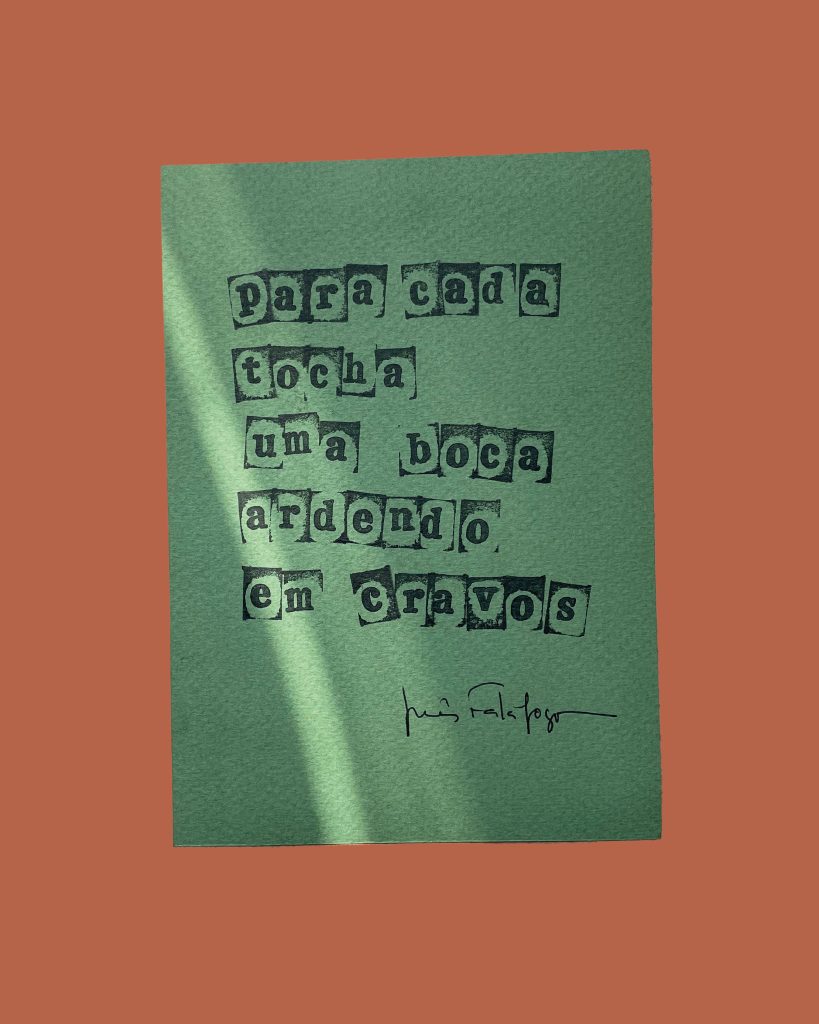 para cada
tocha
uma boca
ardendo
em cravos
Inês Falafogo